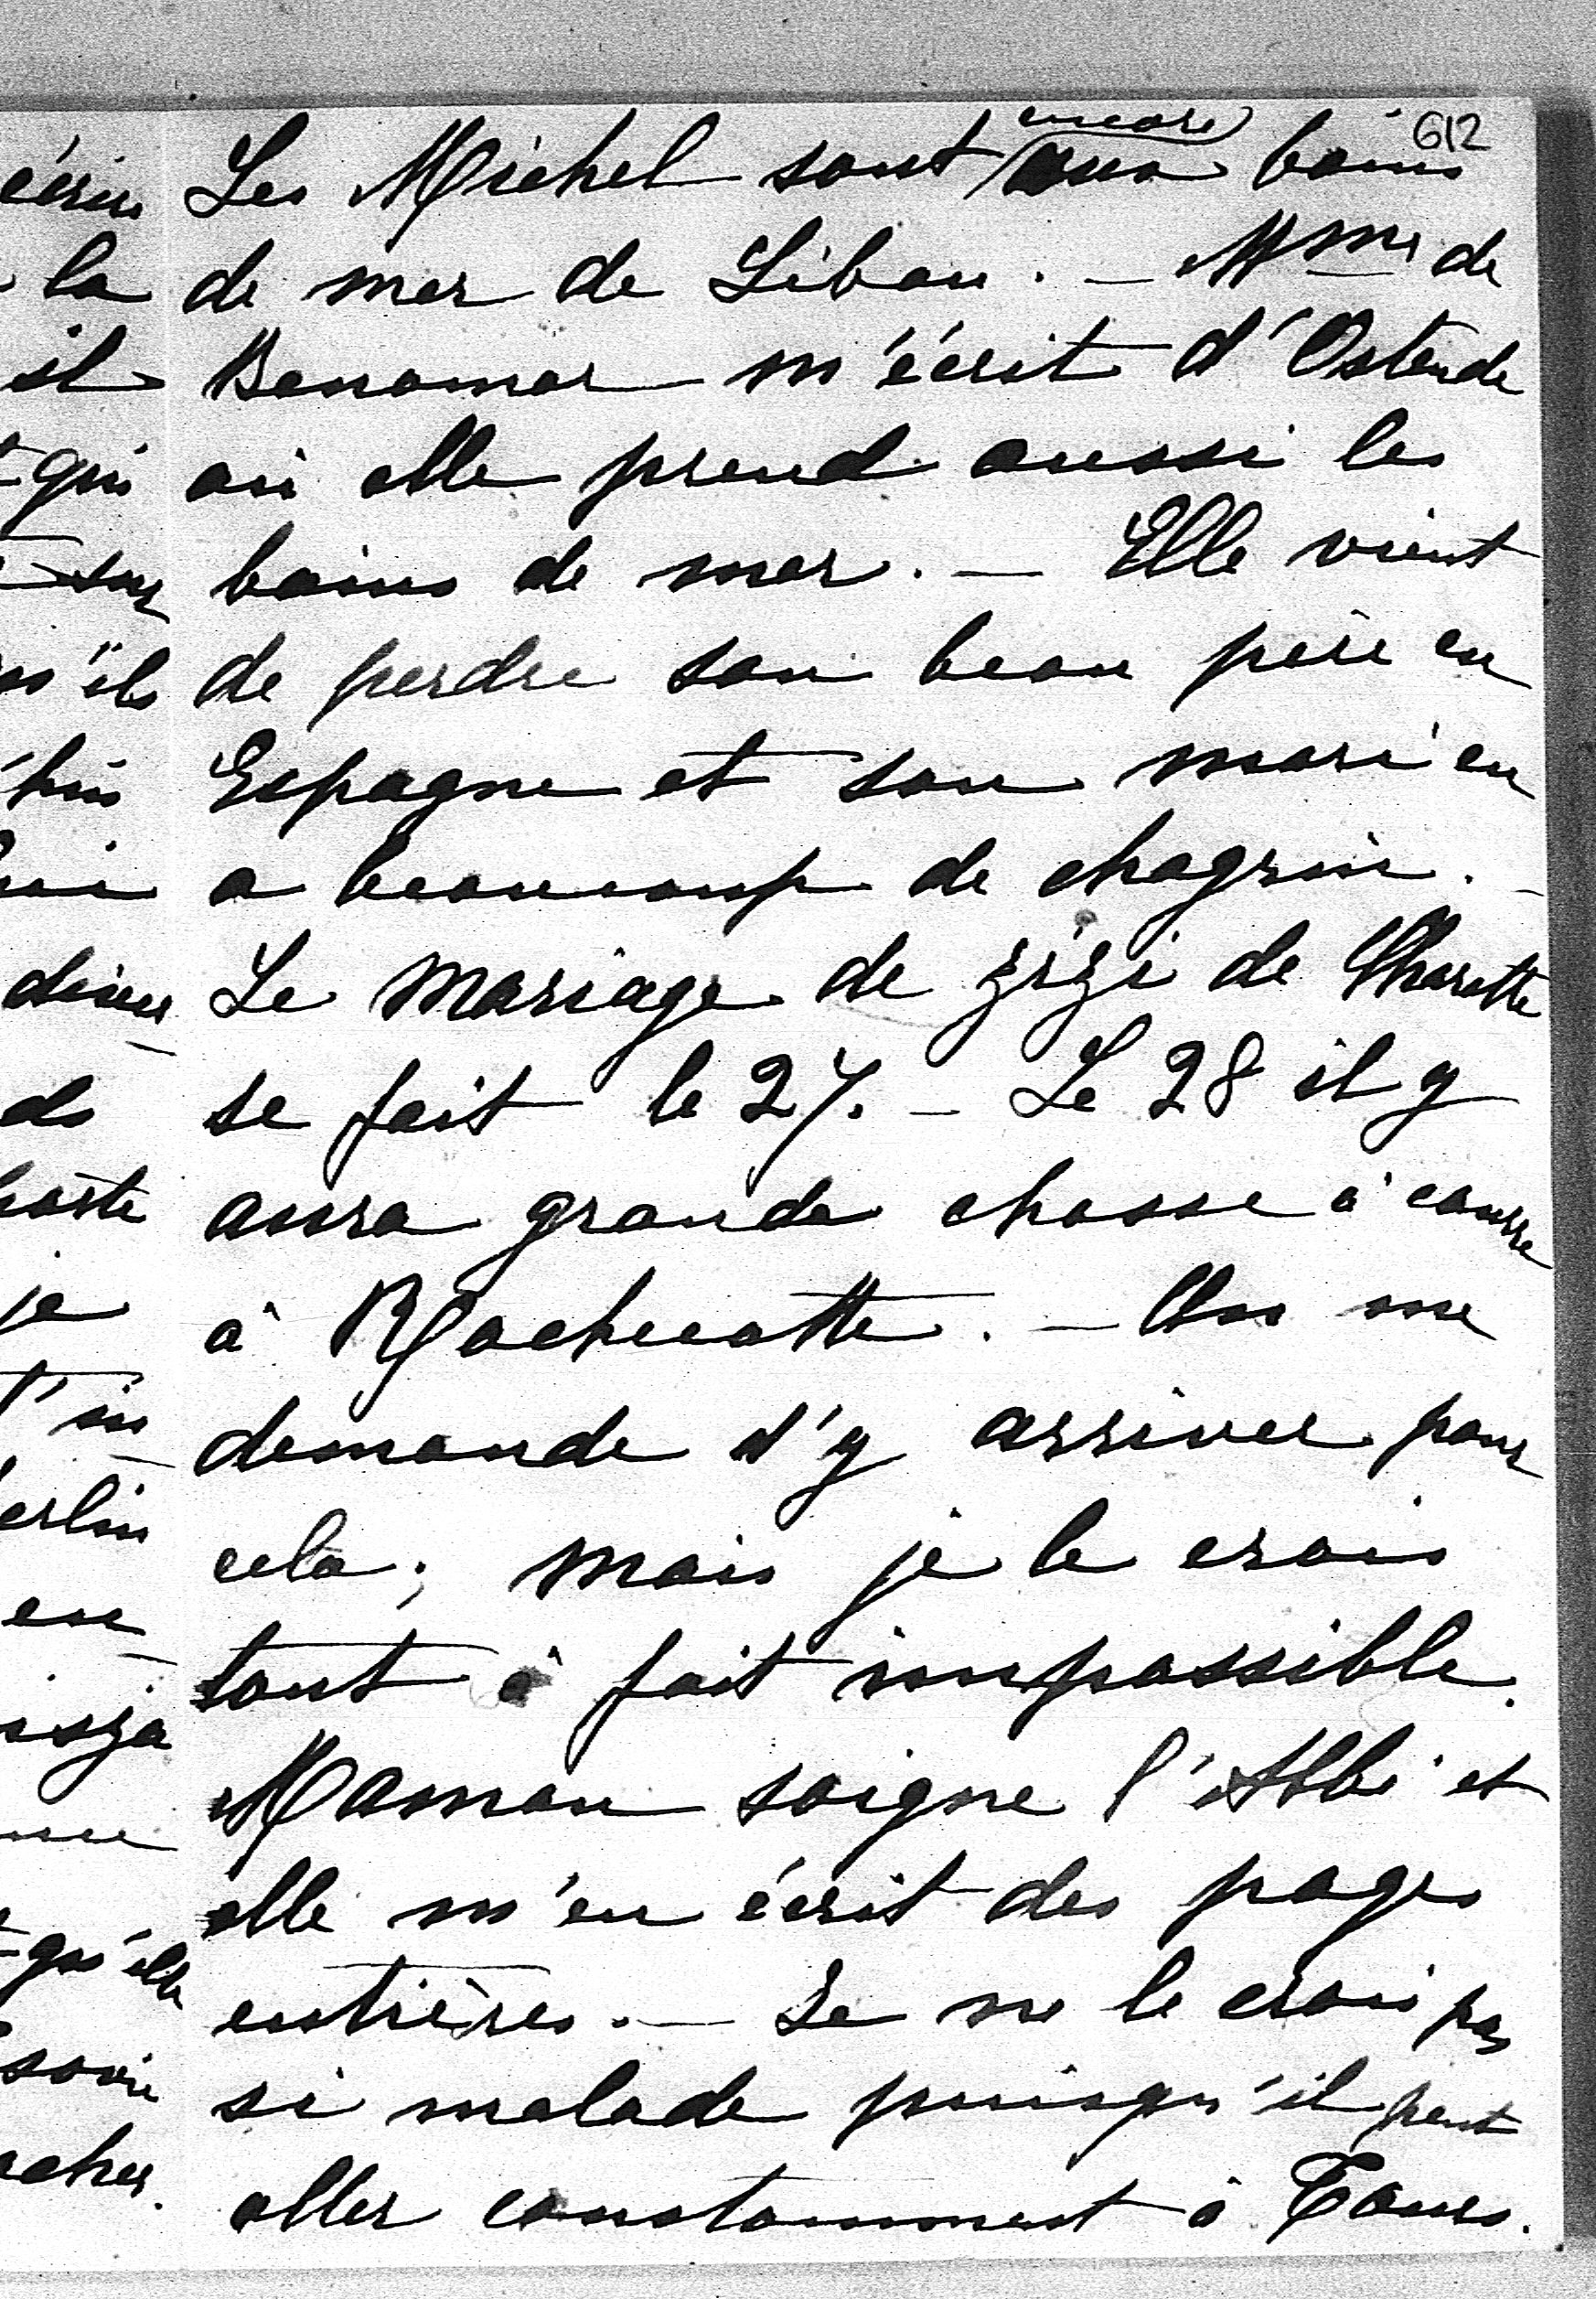 612
Les Michel sont encore aux bains
de mer de Libau. — Mme de
Benomar m'écrit d'Ostende
où elle prend aussi les
bains de mer. — Elle vient
de perdre son beau père en
Espagne et son mari en
a beaucoup de chagrin. —
Le mariage de Zizi de Charette
se fait le 27. — Le 28 il y
aura grande chasse à courre
à Rochecotte. — On me
demande d'y arriver pour
cela; mais je le crois
tout à fait impossible.
Maman soigne l'Abbé et
elle m'en écrit des pages
entières. — Je ne le crois pas
si malade puisqu'il peut
aller constamment à Tours.